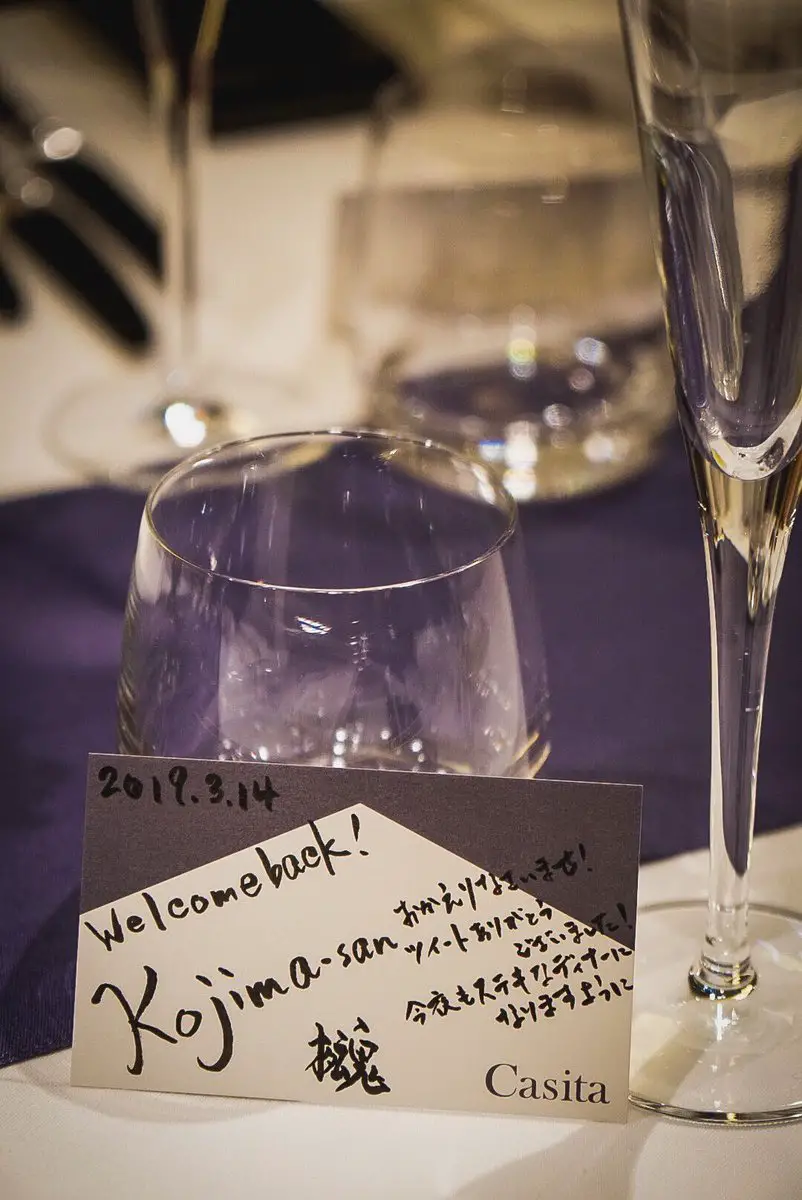 2019.3.14
Welcome back!
Kojima-san
おかえりなさいませ!
ツイートありがとう
ございました!
今夜もステキなディナーに
なりますように
Casita